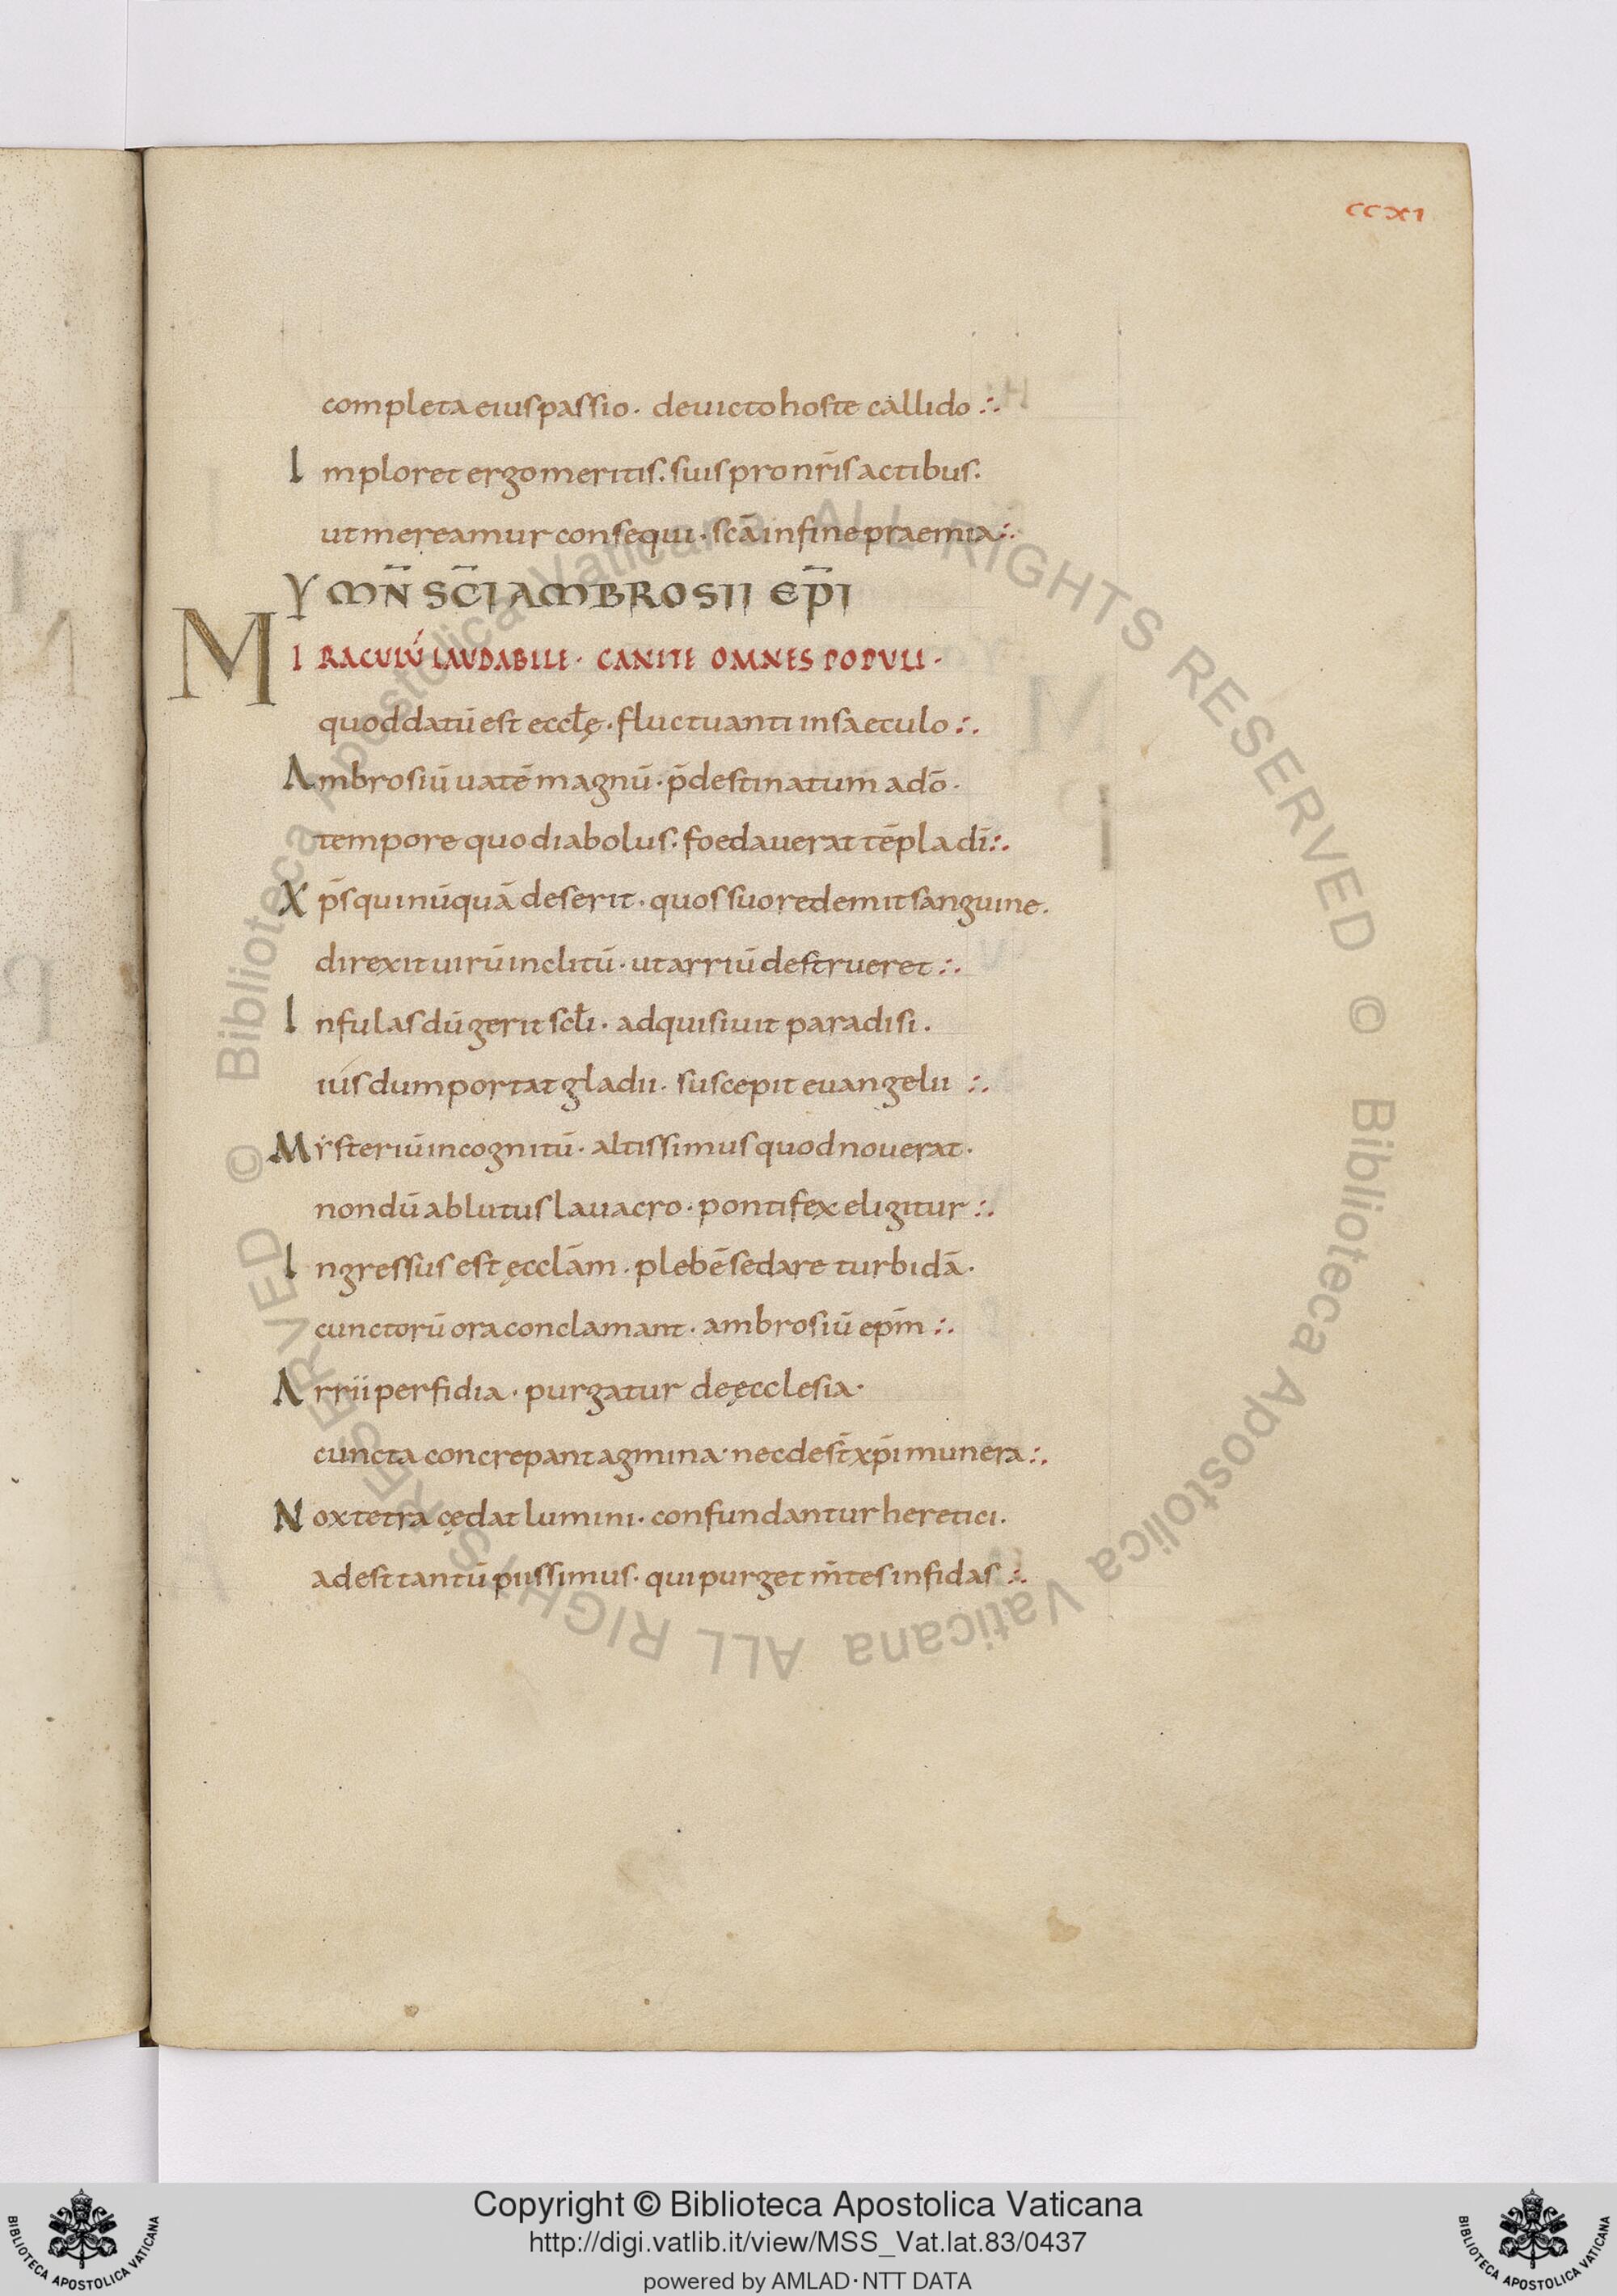 ccxi
completa eius passio · deuicto hoste callido :.
Imploret ergo meritis . suis pro nr̄is actibus .
ut mereamur consequi · scā in fine praemia :.
YMN̄ SC̄I AMBROSII EP̄I
MIRACULŪ LAUDABILE · CANITE OMNES POPULI ·
quod datū est eccłę · fluctuanti in saeculo :.
Ambrosiū uatē magnū · p̄destinatum a dō ·
tempore quo diabolus · foedauerat tēpla dī :.
Xp̄s qui nūquā deserit · quos suo redemit sanguine .
direxit uirū inclitū · ut arriū destrueret :.
Infulas dū gerit scłi · adquisiuit paradisi .
ius dum portat gladii · suscepit euangelii :.
Mẏsteriū incognitū · altissimus quod nouerat ·
nondū ablutus lauacro · pontifex eligitur :.
Ingressus est ęcclām · plebē sedare turbidā ·
cunctorū ora conclamant · ambrosiū ep̄m :.
Arrii perfidia · purgatur de ęcclesia ·
cuncta concrepant agmina · nec dest̄ xp̄i munera :.
Nox tetra cędat lumini · confundantur heretici .
adest tantū piissimus · qui purget m̄tes infidas :.
© Biblioteca Apostolica Vaticana ALL RIGHTS RESERVED © Biblioteca Apostolica Vaticana ALL RIGHTS RESERVED
BIBLIOTECA APOSTOLICA VATICANA
Copyright © Biblioteca Apostolica Vaticana
http://digi.vatlib.it/view/MSS_Vat.lat.83/0437
powered by AMLAD · NTT DATA
BIBLIOTECA APOSTOLICA VATICANA